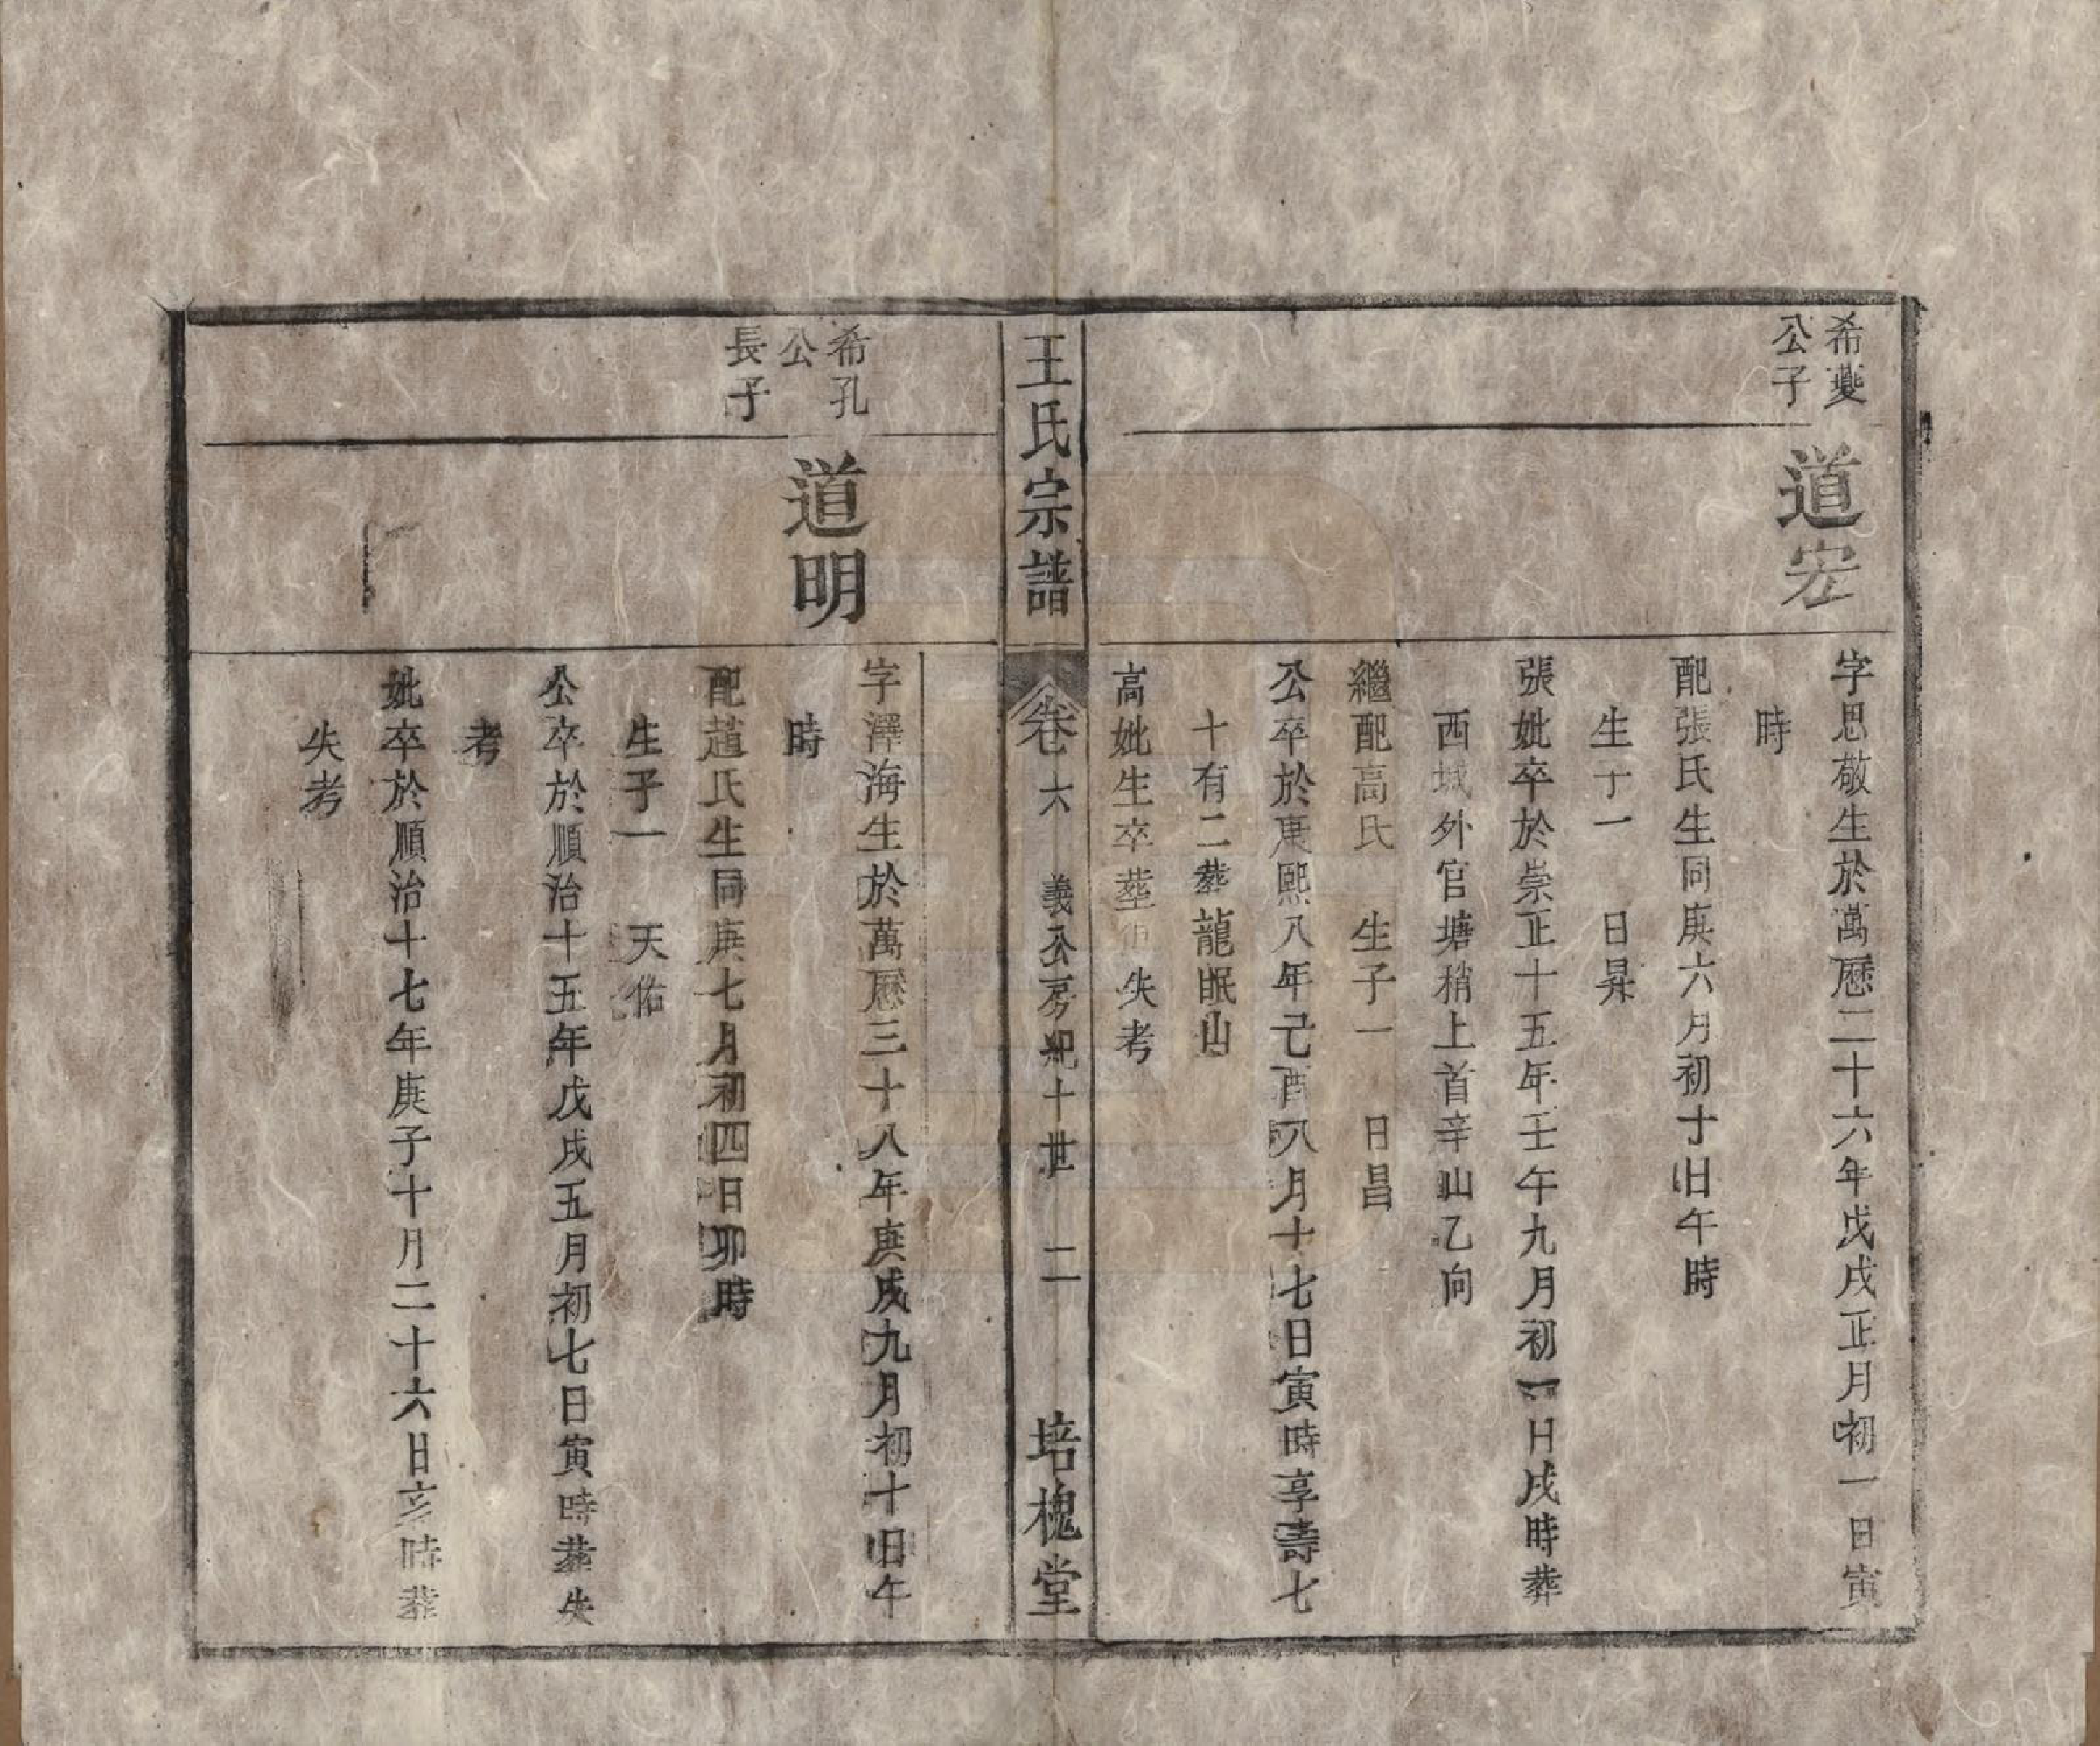 希夔
公子
道宏
字思敬生於萬曆二十六年戊戌正月初一日寅
時
配張氏生同庚六月初十日午時
生子一　日昇
張妣卒於崇正十五年壬午九月初一日戌時葬
西城外官塘稍上首辛山乙向
繼配高氏　生子一　日昌
公卒於康熙八年己酉八月十七日寅時享壽七
十有二葬龍眠山
高妣生卒塟俱失考
王氏宗譜
卷六　義公房紀十世　二
培槐堂
希孔
公
長子
道明
字澤海生於萬曆三十八年庚戌九月初十日午
時
配趙氏生同庚七月初四日卯時
生子一　天佑
公卒於順治十五年戊戌五月初七日寅時葬失
考
妣卒於順治十七年庚子十月二十六日亥時葬
失考